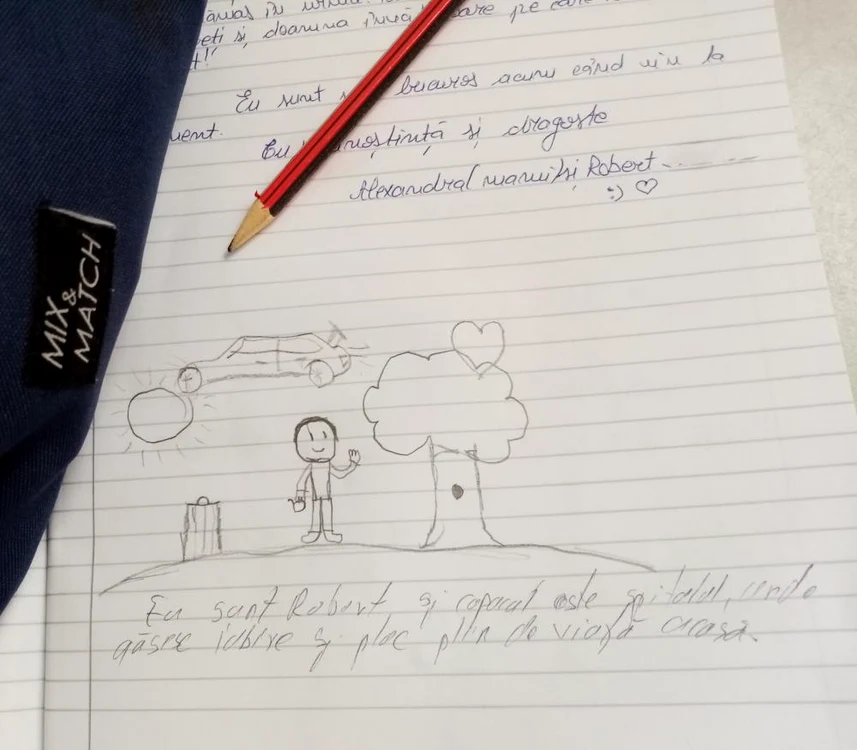 rămas în urmă
și doamna învă pe care
Eu sunt bucuros acum când vin la
Cu și dragoste
Alexandra mami și Robert
:) ♡
MIX
&
MATCH
Eu sunt Robert și copacul este spitalul, unde
găsesc iubire și plec plin de viață acasă.